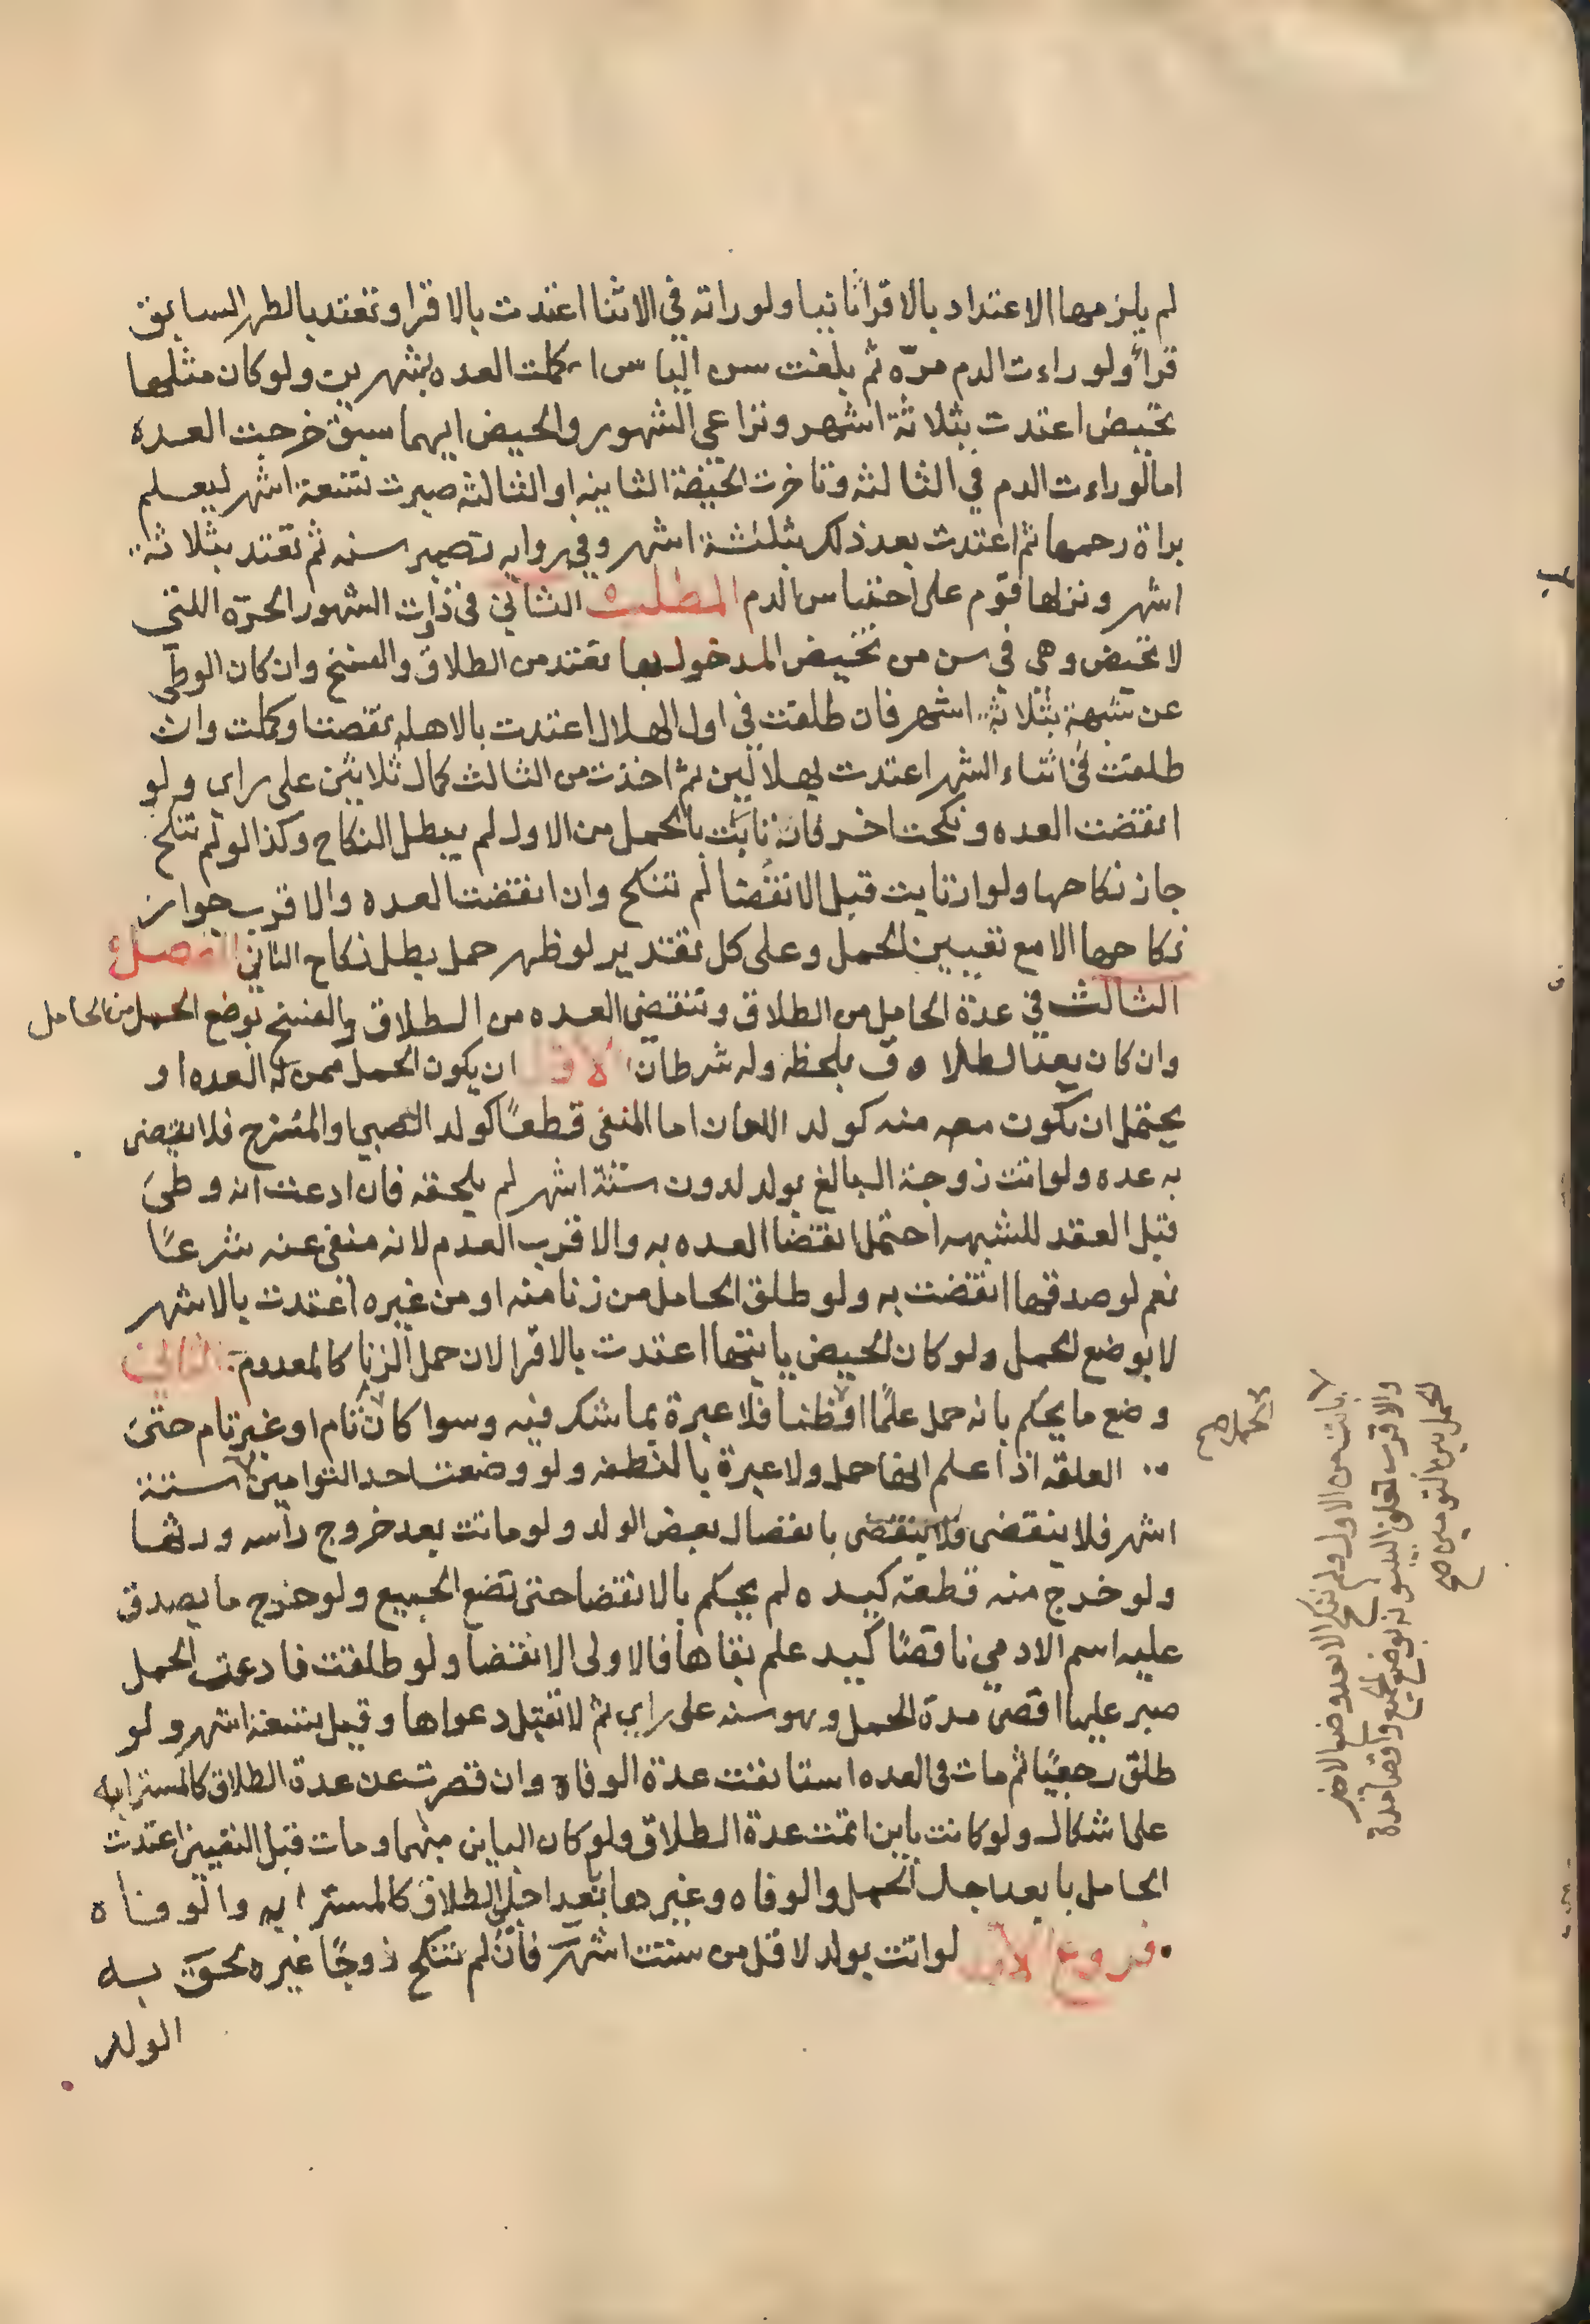 لم يلزمها الاعتداد بالاقرا ثانيا ولو راته في الاثنا اعتدت بالاقرا وتعتد بالطهر السابق
قرأ ولو راءت الدم مرّه ثم بلغت سن الياس اكملت العده بشهرين ولو كان مثلها
تحيض اعتدت بثلاثة اشهر وتراعي الشهور والحيض ايهما سبق خرجت العده
اما لو راءت الدم في الثالثه وتاخرت الحيضة الثانيه او الثالثه صبرت تسعة اشهر ليعلم
براة رحمها ثم اعتدت بعد ذلك بثلثة اشهر وفي روايه تصبر سنه ثم تعتد بثلاثة
اشهر ونزلها قوم على احتباس الدم المطلب الثاني في ذوات الشهور الحرّه اللتي
لا تحيض وهي في سن من تحيض المدخول بها تعتد من الطلاق والفسخ وان كان الوطي
عن شبهة بثلاثة اشهر فان طلقت في اول الهلال اعتدت بالاهله نقصت او كملت وان
طلقت في اثناء الشهر اعتدت بهلالين ثم اخذت من الثالث كمال ثلاثين على راي ولو
انقضت العده ونكحت اخر فان ثابت بالحمل من الاول لم يبطل النكاح وكذا لو لم تنكح
جاز نكاحها ولو ارتابت قبل الانقضا لم تنكح وان انقضت العده والاقرب جواز
نكاحها الا مع تعيين الحمل وعلى كل تقدير لو ظهر حمل بطل نكاح الثاني الفصل
الثالث في عدة الحامل من الطلاق وتنقضي العده من الطلاق والفسخ بوضع الحمل من الحامل
وان كان بعد الطلاق بلحظه وله شرطان الاول ان يكون الحمل ممن له العده او
يحتمل ان يكون منه كولد اللعان اما المنفي قطعًا كولد الصبي او المنزح فلا تقضي
به عده ولو اتت زوجة البالغ بولد لدون ستة اشهر لم يلحقه فان ادعت انه وطئ
قبل العقد للشبهه احتمل انقضا العده به والاقرب العدم لانه منفي عنه شرعًا
نعم لو صدقها انقضت به ولو طلق الحامل من زنا منه او من غيره اعتدت بالاشهر
لا بوضع الحمل ولو كان الحيض ياتيها اعتدت بالاقرا لان حمل الزنا كالمعدوم الثاني
وضع ما يحكم بانه حمل علمًا او ظنا فلا عبرة بما شك فيه وسوا كان تام او غير تام حتى
العلقه اذا علم انها حمل ولا عبرة بالنطفه ولو وضعت احد التوامين لستة
اشهر فلا ينقضي ولا ينقضي بانفصال بعض الولد ولو ماتت بعد خروج راسه ورثها
ولو خرج منه قطعة كيد ه لم يحكم بالانقضا حتى تضع الجميع ولو خرج ما يصدق
عليه اسم الادمي ناقصًا كيد علم بقاها فالاولى الانقضا ولو طلقت فادعت الحمل
صبر عليها اقصى مدة الحمل وهو سنه على راي ثم لا تقبل دعواها وقيل تسعة اشهر ولو
طلق رجعيًا ثم مات في العده استانفت عدة الوفاه وان قصرت عن عدة الطلاق كالمسترابه
على اشكال ولو كانت باين اتمت عدة الطلاق ولو كان الباين مبهما ومات قبل التعيين اعتدت
الحامل بابعد اجل الحمل والوفاه وغيرها بابعد اجل الطلاق كالمسترابه والوفاة
فروع الاول لو اتت بولد لاقل من ستت اشهر فان لم تنكح زوجًا غيره لحق به
الولد
الحمل صح
بانت من الاول ولم تنكح الا بعد وضع الاخر
والاقرب تعلق البينونه بوضع الجميع واقصا مدة
الحمل بين التومين صح